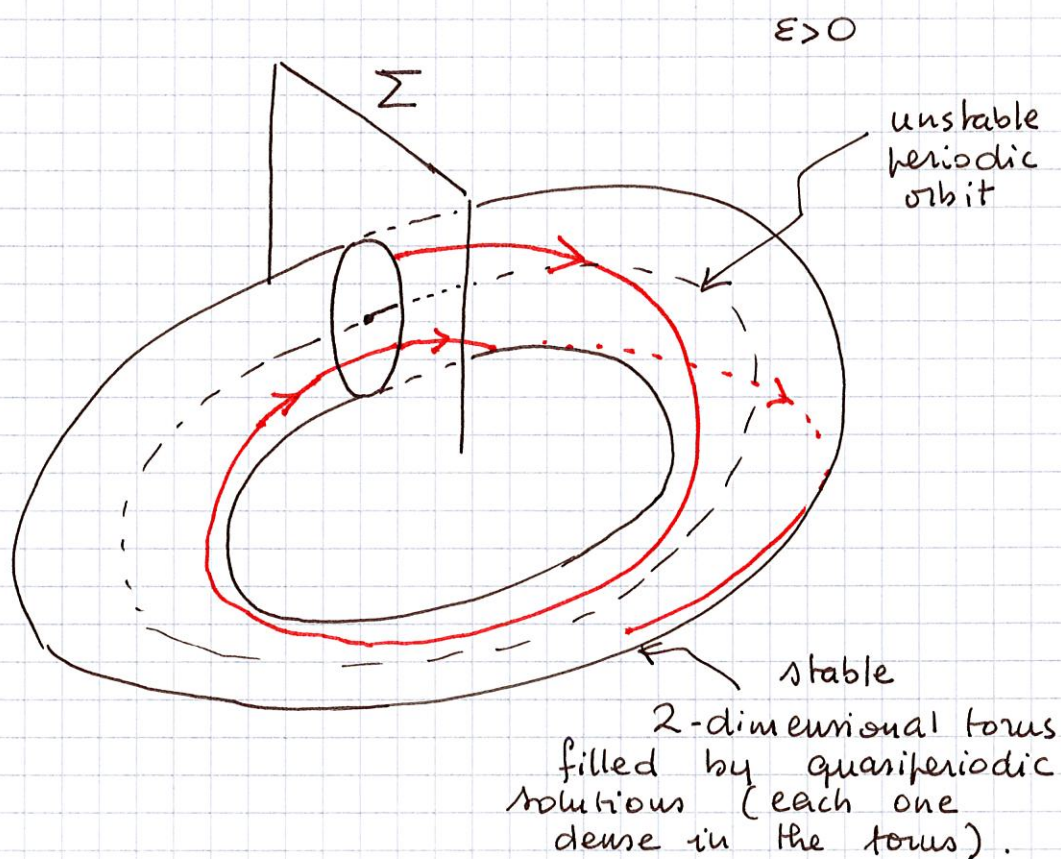 ε>0
Σ
unstable
periodic
orbit
stable
2-dimensional torus
filled by quasiperiodic
solutions (each one
dense in the torus).